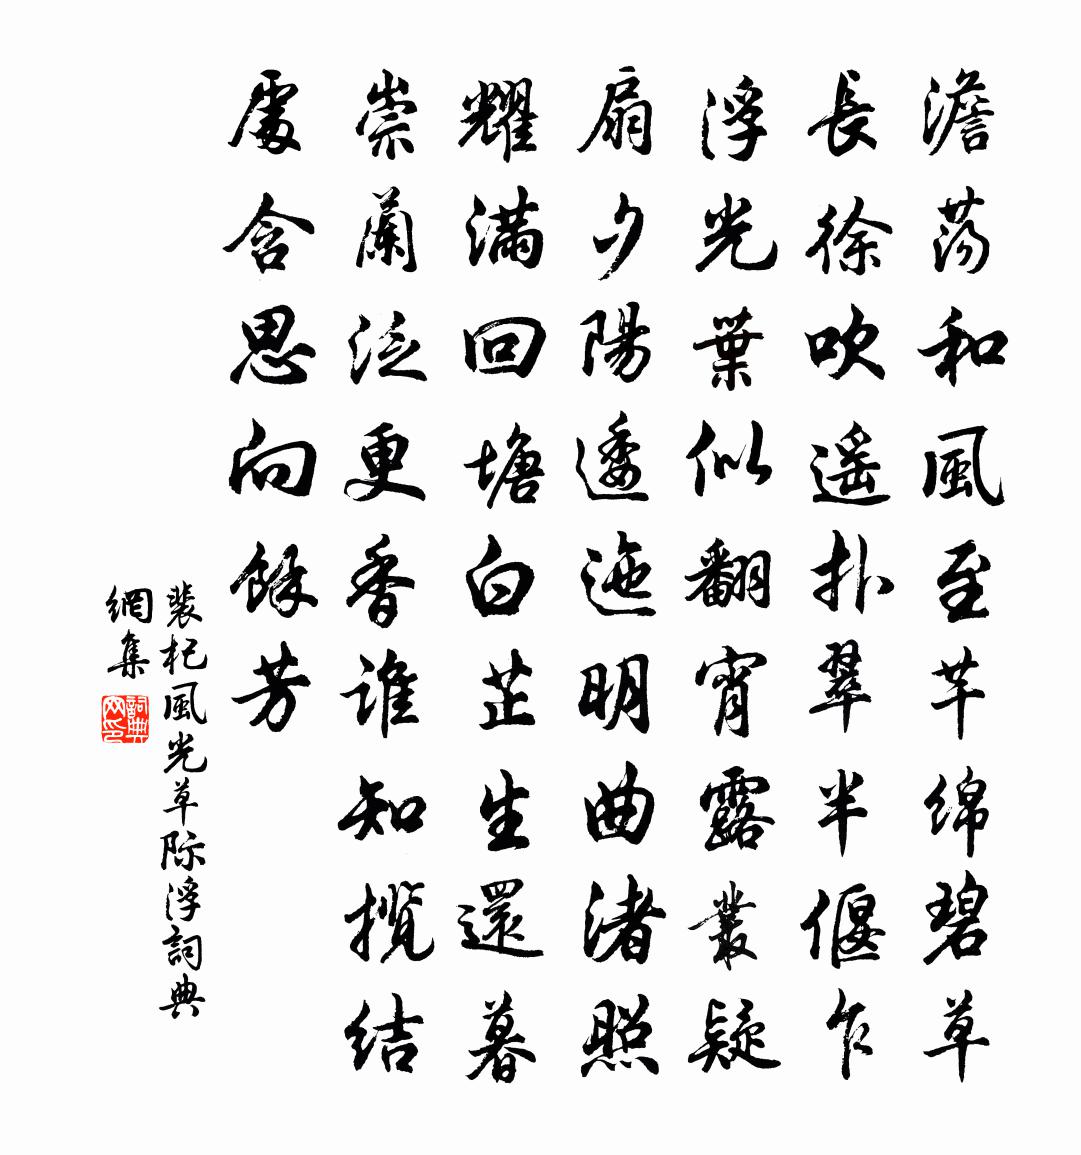 澹荡和風至芊綿碧草
長徐吹遥扑翠半偃乍
浮光葉似翻宵露叢疑
扇夕陽逶迤明曲渚照
耀滿回塘白芷生還暮
崇蘭泛更香誰知揽结
處含思向餘芳
裴杞風光草际浮詞典
網集
詞典
网印